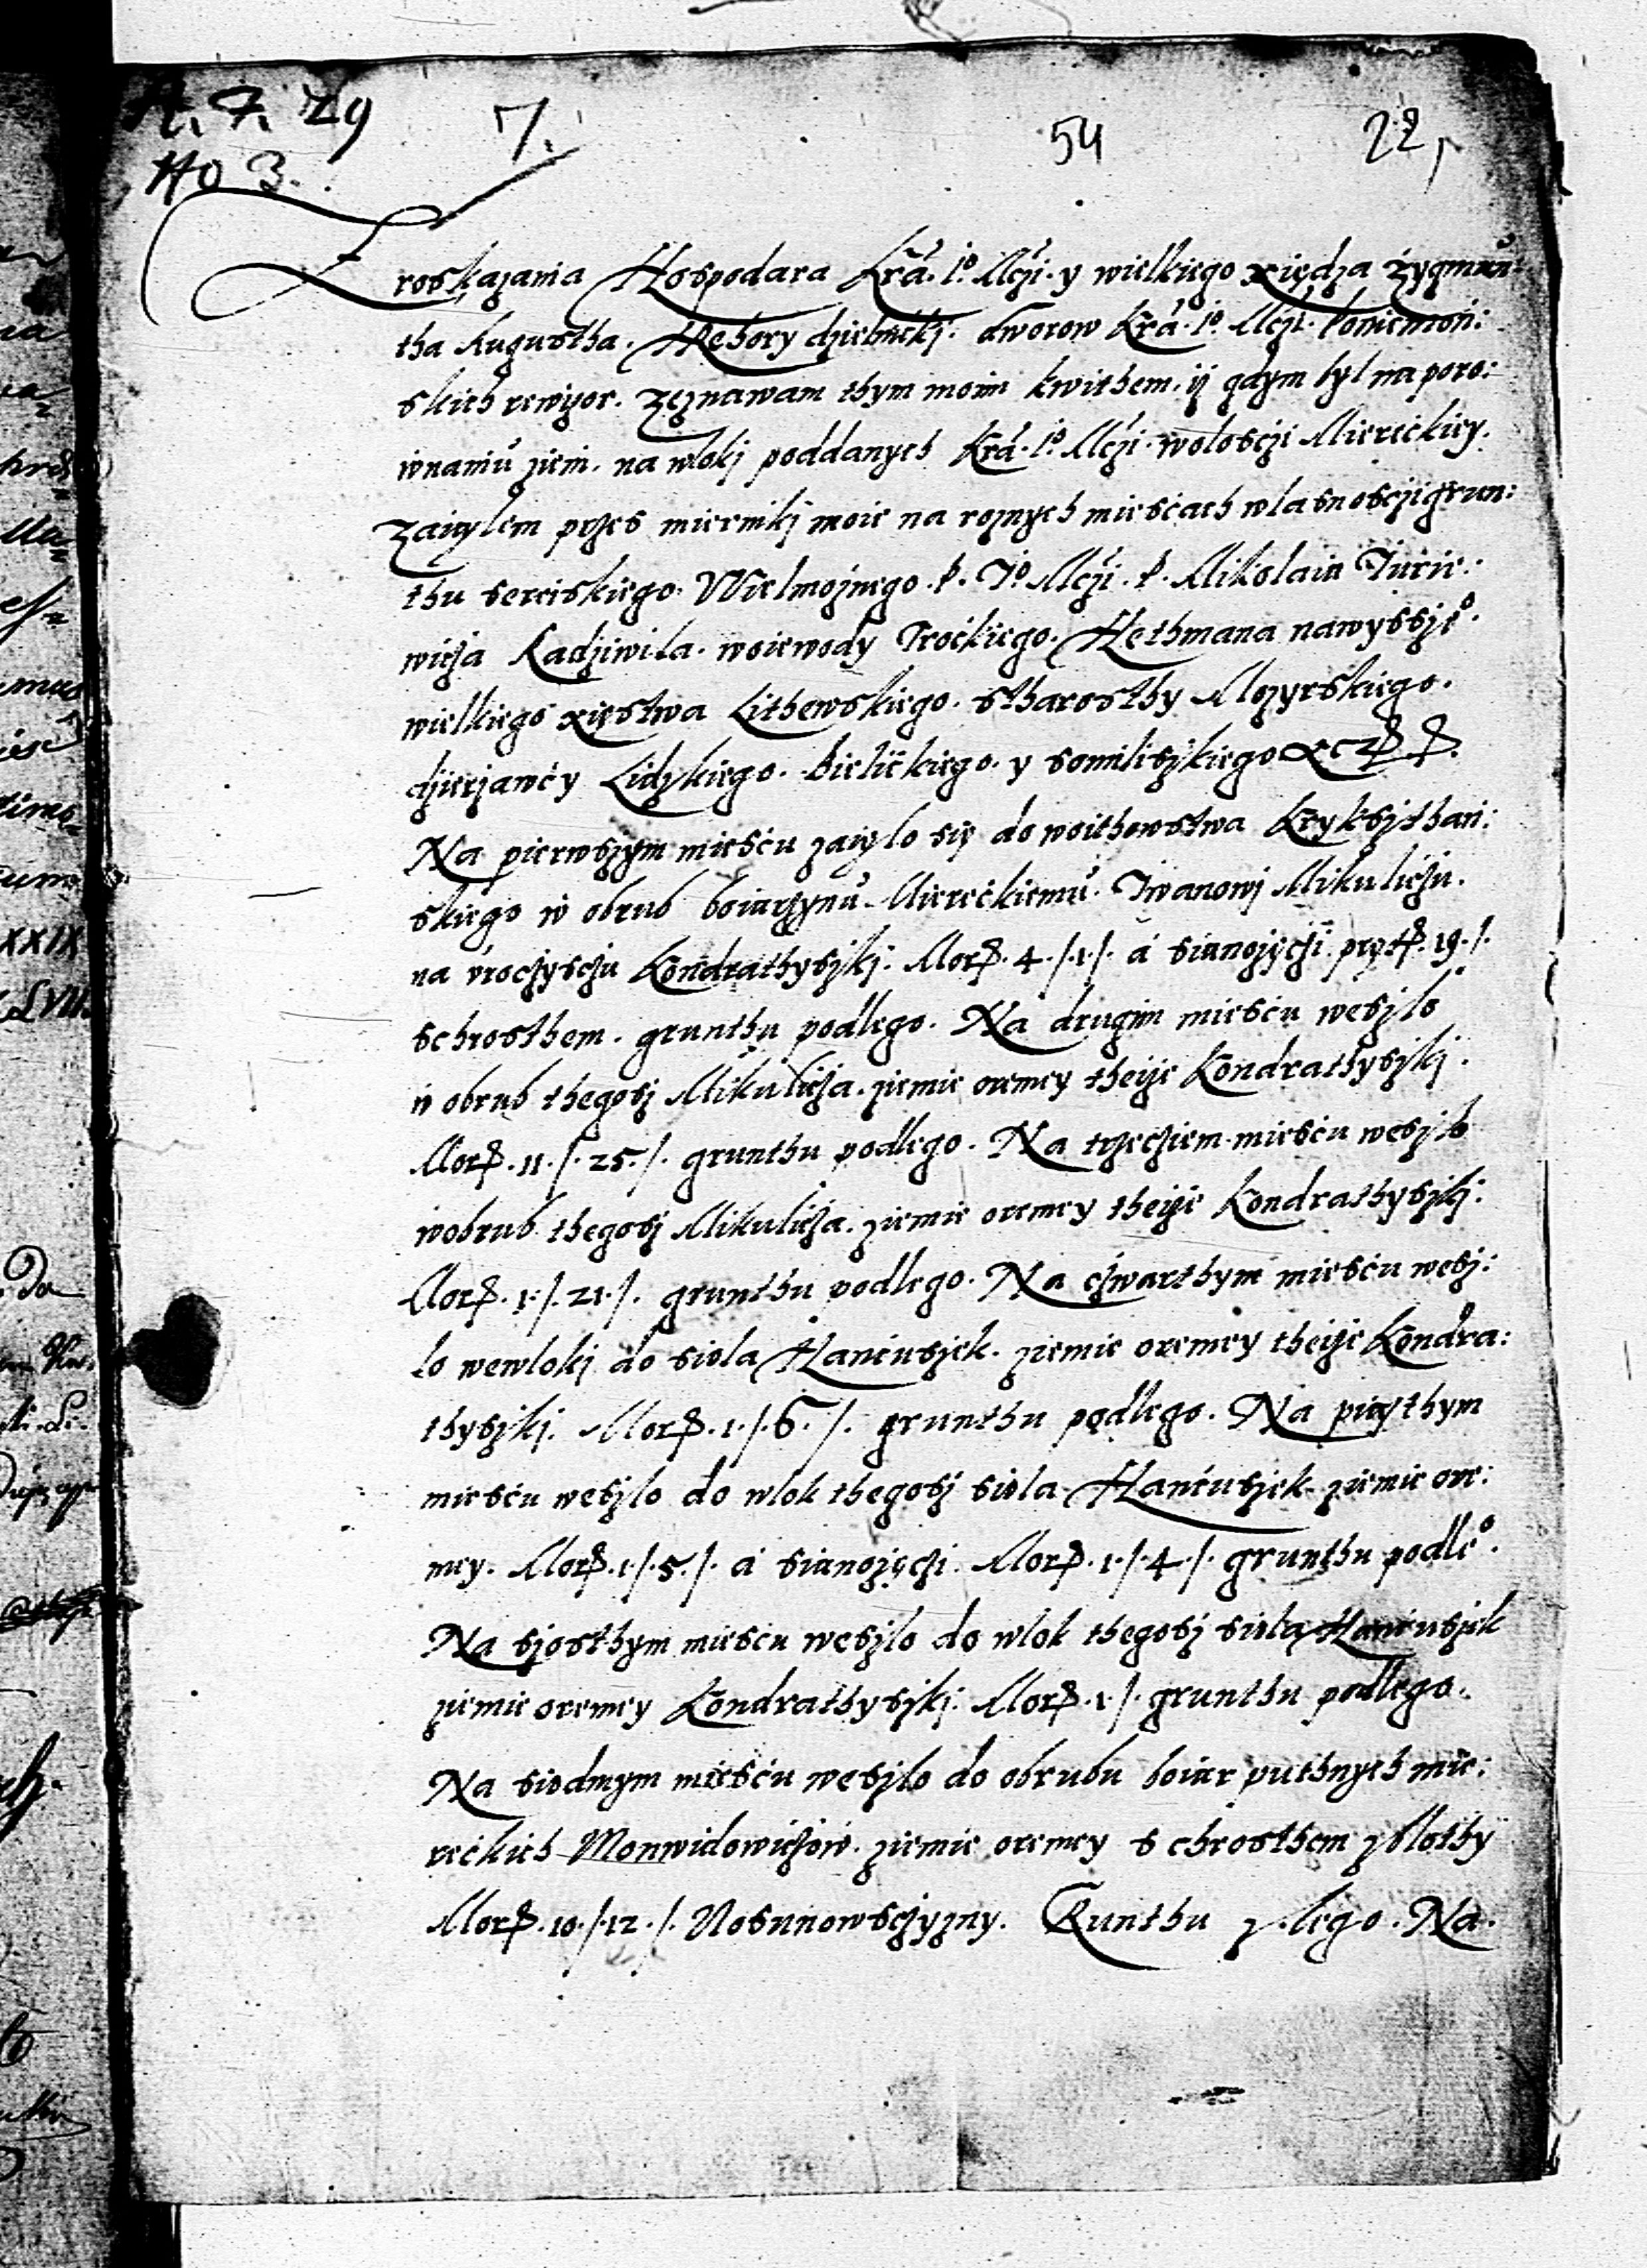 A. 7. 29 7. 54 22
No 3.
Z roskazania Hospodara Kra. Jo. Mczi. y wielkiego xiędza Zygmun:
tha Augustha. Hrehory dworow Kra. Jo. Mczi. Poniemoń:
skich rewizor. Zeznawam thym moim kwithem. iż gdym był na poro:
wnaniu ziem. na wloki poddanych Kra. Jo. Mczi. wolosczi Miereckiey.
Zaiąłem przes mierniki moie na roznych miescach wlasnosczi grun:
thu sereiskiego. Wielmoznego. P. Jo. Mczi. P. Mikolaia Jurie:
wicza Radziwila. woiewody Trockiego. Hethmana nawyssze°.
wielkiego xięstwa Lithewskiego. starosthy Mozyrskiego.
dzierzawcy Lidzkiego. Bielickiego. y somiliszkiego
Na pierwszym miescu zaięlo się do woithowstwa Krykszthań:
skiego w obrub boiarzynu Miereckiemu. Iwanowi Mikuliczu.
na uroczysczu Kondrathyszki. Morg. 4./.1./. a sianozęczi pręt. 19./.
schrosthem. grunthu podlego. Na drugim miescu weszlo
w obrub thegosz Mikulicza. ziemie oremey theize Kondrathyszki.
Morg. 11./.25./. grunthu podlego. Na trzecziem miescu weszlo
wobrub thegosz Mikulicza. ziemie oremey theize Kondrathyszki.
Morg. 1./.21./. grunthu podlego. Na czwarthym miescu wesz:
lo wewloki do siola Hancuszek. ziemie oremey theize Kondra:
thyszki. Morg. 1./.6./. grunthu podlego. Na piąthym
miescu weszlo do wlok thegosz siola Hancuszek ziemie ore:
mey. Morg. 1./.5./. a sianozęczi. Morg. 1./.4./. grunthu podle°.
Na szosthym miescu weszlo do wlok thegosz siola Hancuszek
ziemie oremey Kondrathyszki. Morg. 1./. grunthu podlego.
Na siodmym miescu weszlo do obrubu boiar puthnych mie:
reckich Monwidowiczow. ziemie oremey s chrosthem zblothy
Morg. 10./.12./. Nosunowsczyzny. Grunthu Na